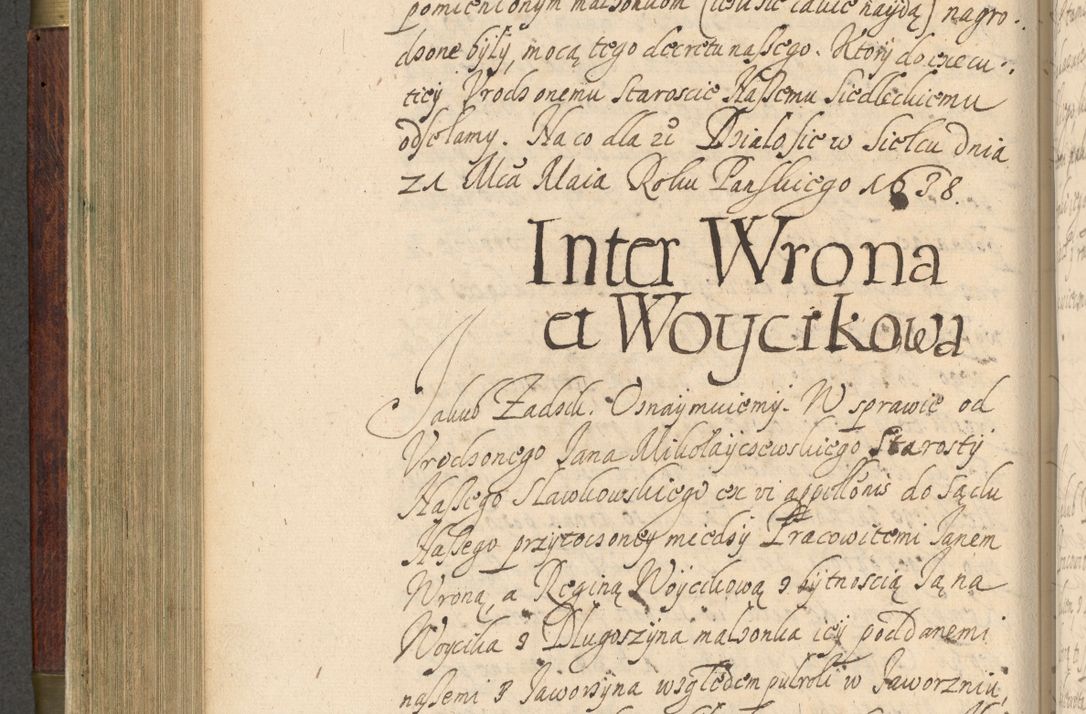 pomienionym małżonkom (ieśli się takie naydą) nagro-
dzone były, mocą tego decretu naszego. Który do execu-
ticy Vrodzonemu Staroscie Naszemu Siedleckiemu
odsełamy. Na co dla 2i Działo się w Sielcu Dnia
21 Mca Maia Roku Pańskiego 1638.
Inter Wrona
et Woycikowa
Jakub Zadzik. Oznaymuiemy. W sprawie od
Vrodzonego Jana Mikołayczewskiego Starosty
Naszego Sławkowskiego ex vi appellonis do Sądu
Naszego przytoczoney miedzy Pracowitemi Janem
Wroną, a Reginą Woycikową z bytnoscią Jana
Woycika z Długoszyna małżonka icy poddanemi
naszemi z Jaworzyna względem pułroli w Jaworzniu,